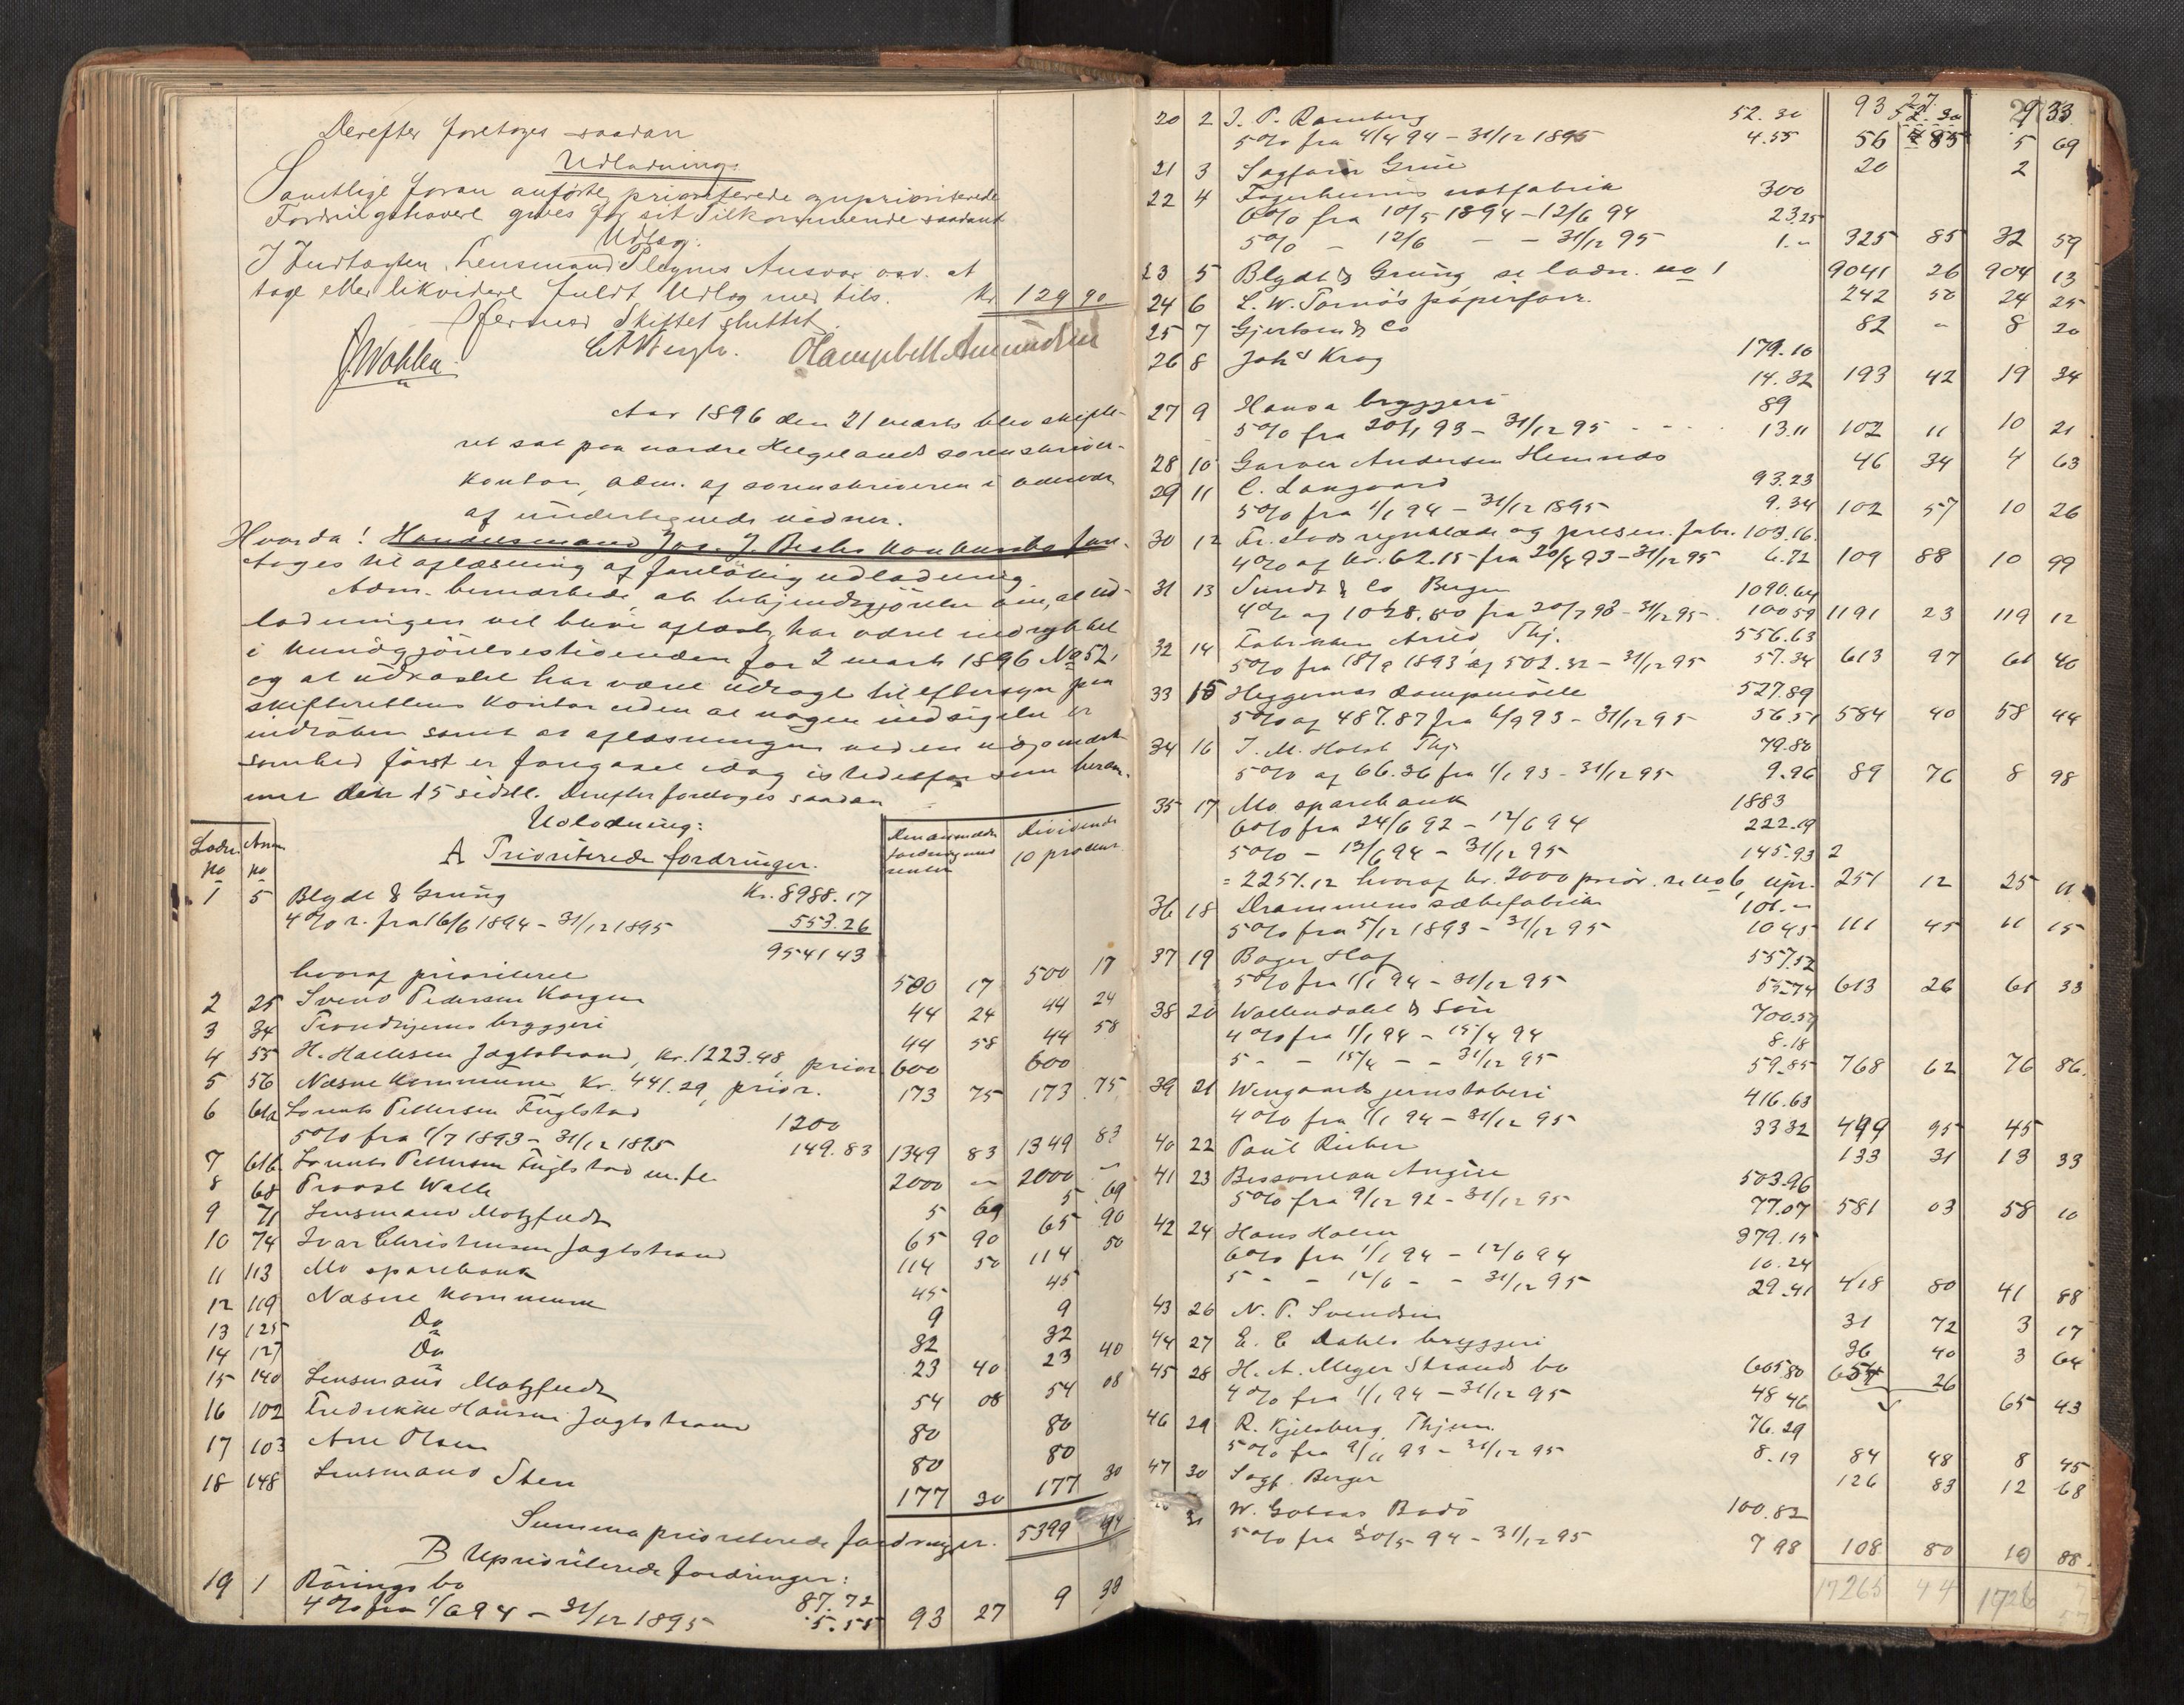 Derefter foretoges saadan
Udlodning:
Samtlige foran anførte prioriterede og uprioriterede
Fordringshavere gives for sit Tilkommende saadant
Udlæg:
I Indtægten, Lensmand Ansvar osv. at
tage eller likvidere fuldt Udlæg med tils. Kr 129 90
Hermed Skiftet sluttet.
CABergh. OCampbell Amundsen
Aar 1896 den 21 marts blev skifte-
ret sat paa nordre Helgelands sorenskriver-
kontor, adm. af sorenskriveren i overvær
af undertegnede vidner.
Hvorda! Handelsmand Jos. J. konkursbo fore-
toges til aflæsning af foreløbig udlodning.
Adm. bemærkede at bekjendtgjørelse om, at ud-
lodningen vil blive aflæst, har været indrykket
i kundgjørelsestidenden for 2 marts 1896 No 52,
og at udkastet har været udlagt til eftersyn paa
skifterettens kontor uden at nogen indsigelse er
indløben samt at aflæsningen ved en uopmærk-
somhed først er foregaaet idag istedetfor som beram-
met den 15 sidstl. Derefter foretoges saadan
Udlodning:
Lodn. No Anm No fordring med renter Dividende 10 procent
A Prioriterede fordringer.
1 5 Blydt & Grung Kr. 8988.17
4% r. fra 16/6 1894 - 31/12 1895 553.26
9541 43
hvoraf prioriteret 500 17 500 17
2 25 Svend Pedersen Korgen 44 24 44 24
3 34 Trondhjems bryggeri 44 58 44 58
4 55 H. Hallesen Jagtstrand, Kr. 1223.48, prior. 600 600
5 56 Næsne Kommune, Kr. 441.29, prior. 173 75 173 75
6 61a Lorents Pettersen Fuglstad 1200
5% fra 1/7 1893 - 31/12 1895 149.83 1349 83 1349 83
7 61b Lorents Pettersen Fuglstad m. fl. 2000 - 2000 -
8 68 Provst Walle 5 69 5 69
9 71 Lensmand Motzfeldt 65 90 65 90
10 74 Ivar Christensen Jagtstrand 114 50 114 50
11 113 Mo sparebank 45 45
12 119 Næsne Kommune 9 9
13 125 Do 32 32
14 127 Do 23 40 23 40
15 140 Lensmand Motzfeldt 54 08 54 08
16 102 Fredrikke Hansen Jagtstrand 80 80
17 103 Arn Olsen 80 80
18 148 Lensmand Sten 177 30 177 30
Summa prioriterede fordringer. 5399 44
B Uprioriterede fordringer:
19 1 Rörings bo 87.72
4% fra 1/6 94 - 31/12 1895 5.55 93 27 9 33
20 2 J. P. Ramberg 52.30 93 27 9 33
5% fra 4/4 94 - 31/12 1895 4.55 56 85 5 69
21 3 Sagfører Grue 20 2
22 4 Fagerheims notfabrik 300
6% fra 10/5 1894 - 12/6 94 23.25
5% - 12/6 - - 31/12 95 1.- 325 85 32 59
23 5 Blydt & Grung se lodn. no 1 9041 26 904 13
24 6 L. W. Tornøs papirforr. 242 50 24 25
25 7 Gjertsen & Co 82 - 8 20
26 8 Johs Krog 179.10
14.32 193 42 19 34
27 9 Hansa bryggeri 89
5% fra 20/1 93 - 31/12 95 13.11 102 11 10 21
28 10 Garver Andersen Hemnæs 46 34 4 63
29 11 C. Langaard 93.23
5% fra 1/1 94 - 31/12 1895 9.34 102 57 10 26
30 12 Fr.stads regnklæde og presen. fabr. 103.16.
4% af Kr. 62.15 fra 20/4 93 - 31/12 95 6.72 109 88 10 99
31 13 Sundt & Co Bergen 1090.64
4% af 1028.80 fra 20/7 93 - 31/12 95 100 59 1191 23 119 12
32 14 Fabrikken Thj. 556.63
5% fra 18/9 1893 af 502.32 - 31/12 95 57.34 613 97 61 40
33 15 Heggernæs dampmölle 527.89
5% af 487.87 fra 6/9 93 - 31/12 95 56.51 584 40 58 44
34 16 J. M. Holst Thj. 79.80
5% af 66.36 fra 1/1 93 - 31/12 95 9.96 89 76 8 98
35 17 Mo sparebank 1883
6% fra 24/6 92 - 12/6 94 222.19
5% - 12/6 94 - 31/12 95 145.93 2
= 2251.12 hvoraf kr. 2000 prior. se no 6, upr. 251 12 25 11
36 18 Drammens sæbefabrik 101.-
5% fra 5/12 1893 - 31/12 95 10 45 111 45 11 15
37 19 Bager Hof 557.52
5% fra 1/1 94 - 31/12 95 55.74 613 26 61 33
38 20 Wallendahl & Sön 700.59
4% fra 1/1 94 - 15/4 94 8.18
5 - - 15/4 - - 31/12 95 59.85 768 62 76 86.
39 21 Wingaards jernstøberi 416.63
4% fra 1/1 94 - 31/12 95 33 32 449 95 45
40 22 Paul Rieber 133 31 13 33
41 23 Bessonneau Angers 503.96
5% fra 9/12 92 - 31/12 95 77.07 581 03 58 10
42 24 Hans Holm 379.15
6% fra 1/1 94 - 12/6 94 10.24
5 - - 12/6 - - 31/12 95 29.41 418 80 41 88
43 26 N. P. Svendsen 31 72 3 17
44 27 E. C Dahls bryggeri 36 40 3 64
45 28 H. A. Meyer Strands bo 605.80 654 26
4% fra 1/1 94 - 31/12 95 48 46 65 43
46 29 R. Kjelsberg, Thjem. 76.29
5% fra 9/11 93 - 31/12 95 8.19 84 48 8 45
47 30 Sagf. Berger 126 83 12 68
31 W. Bodö 100.82
5% fra 30/5 94 - 31/12 95 7 98 108 80 10 88.
17265 44 1726